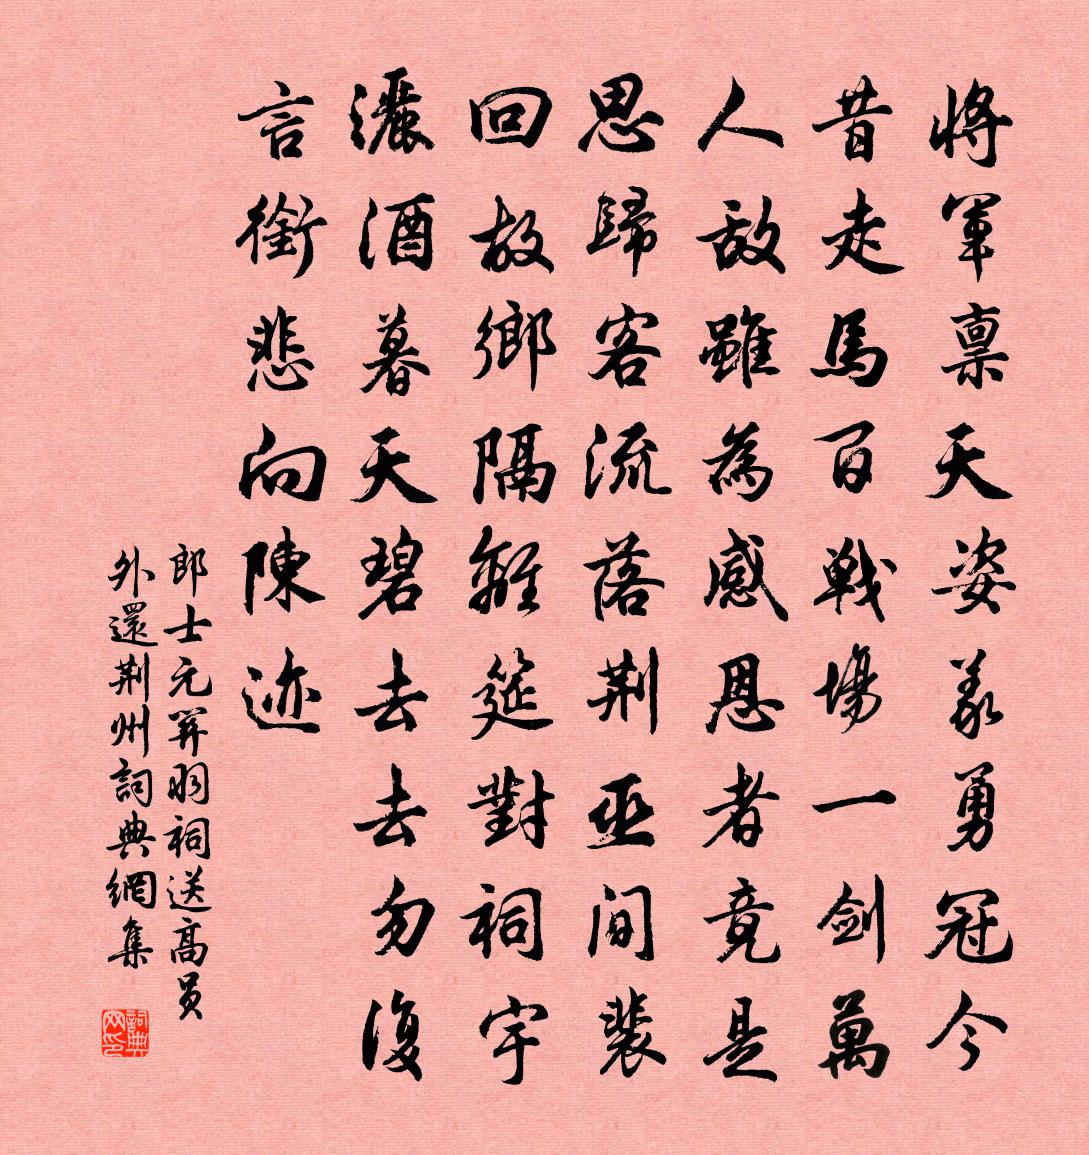 將軍禀天姿義勇冠今
昔走馬百戰場一劍萬
人敵雖為感恩者竟是
思歸客流落荆巫間裴
回故鄉隔離筵對祠宇
灑酒暮天碧去去勿復
言銜悲向陳迹
郎士元關羽祠送高員
外還荆州詞典網集
詞典网印